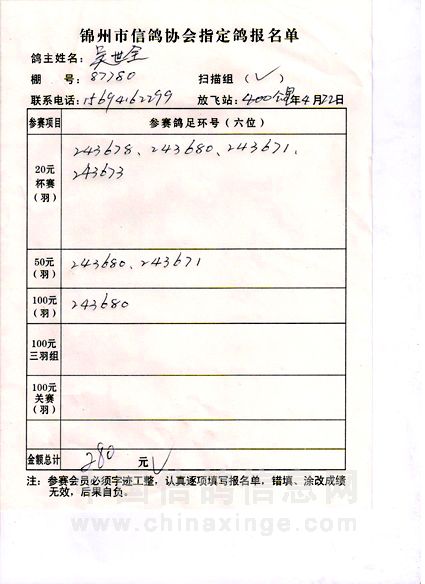 锦州市信鸽协会指定鸽报名单
鸽主姓名：吴世全
棚 号：87780 扫描组（√）
联系电话：15694162299 放飞站：400公里年4月22日
参赛项目 参赛鸽足环号（六位）
20元
杯赛
（羽）
243678、243680、243671、
243673
50元
（羽）
243680、243671
100元
（羽）
243680
100元
三羽组
100元
关赛
（羽）
金额总计 280 元√
注：参赛会员必须字迹工整，认真逐项填写报名单，错填、涂改成绩
无效，后果自负。
中国信鸽信息网
www.chinaxinge.com